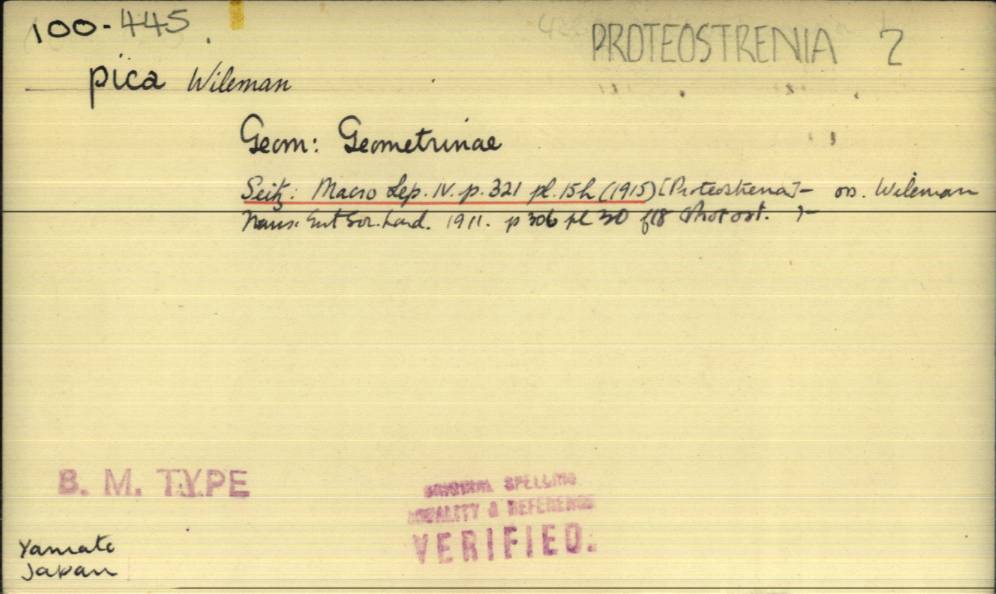 100-445
PROTEOSTRENIA 2
pica Wileman
Geom: Geometrinae
Seitz: Macro Lep. IV. p. 321 pl. 15h (1915) [Proteostrenia]- Wileman
Trans. Ent Soc. Lond. 1911. p 306 pl 30 f18
B. M. TYPE
ORIGINAL SPELLING
LOCALITY & REFERENCE
VERIFIED.
Yamato
Japan